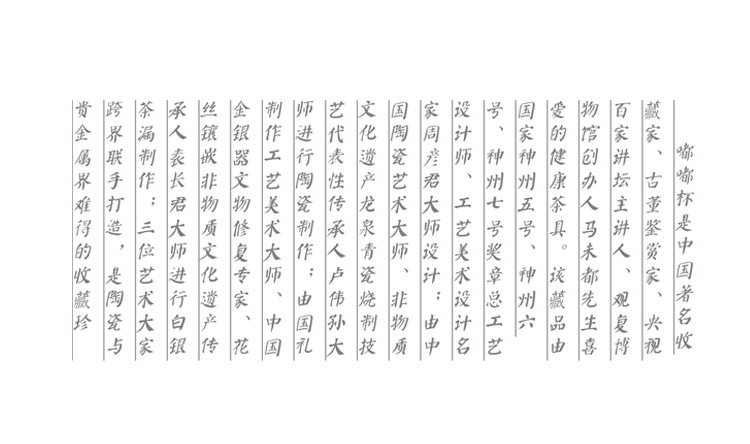 嘟嘟杯是中国著名收
藏家、古董鉴赏家、央视
百家讲坛主讲人、观复博
物馆创办人马未都先生喜
爱的健康茶具。该藏品由
国家神州五号、神州六
号、神州七号奖章总工艺
设计师、工艺美术设计名
家周彦君大师设计；由中
国陶瓷艺术大师、非物质
文化遗产龙泉青瓷烧制技
艺代表性传承人卢伟孙大
师进行陶瓷制作；由国礼
制作工艺美术大师、中国
金银器文物修复专家、花
丝镶嵌非物质文化遗产传
承人袁长君大师进行白银
茶漏制作；三位艺术大家
跨界联手打造，是陶瓷与
贵金属界难得的收藏珍